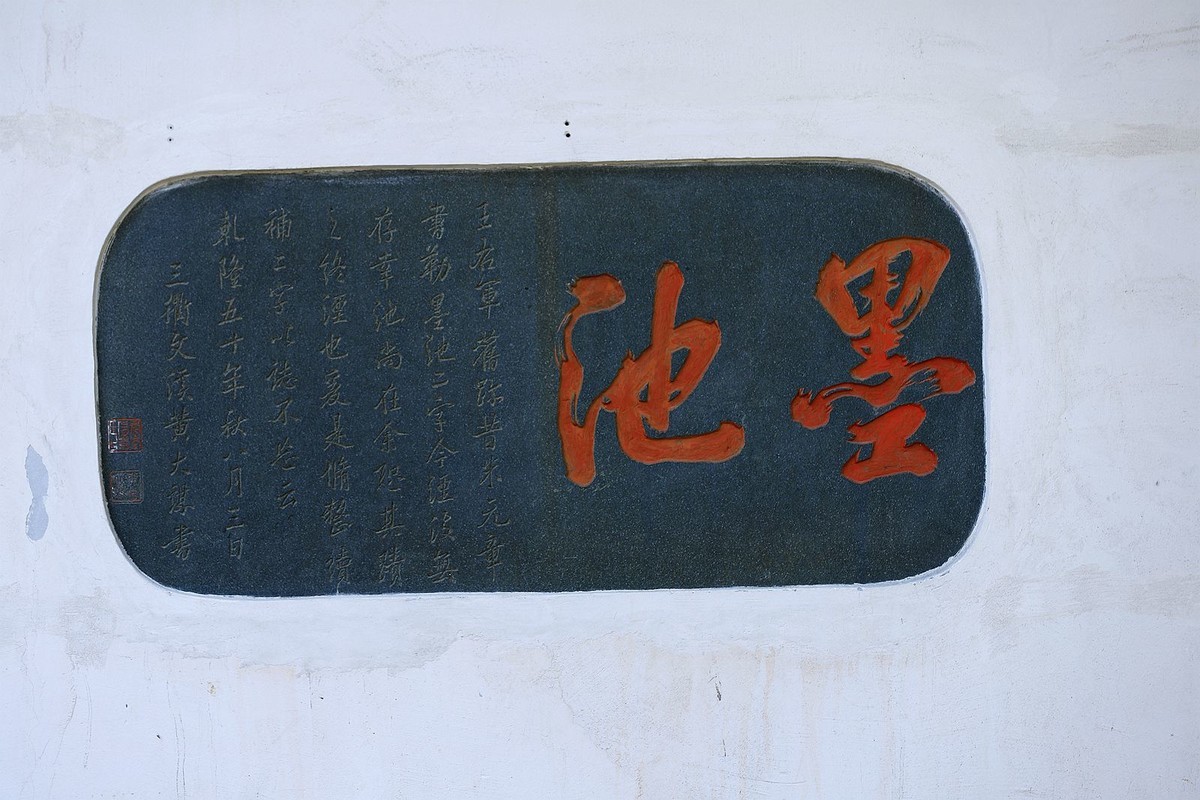 墨池
王右軍舊跡昔米元章
書勒墨池二字今湮沒無
存幸池尚在余恐其蹟
之終湮也爰是脩整續
補二字以誌不忘云
乾隆五十年秋八月三日
三衢文溪黄大謀書